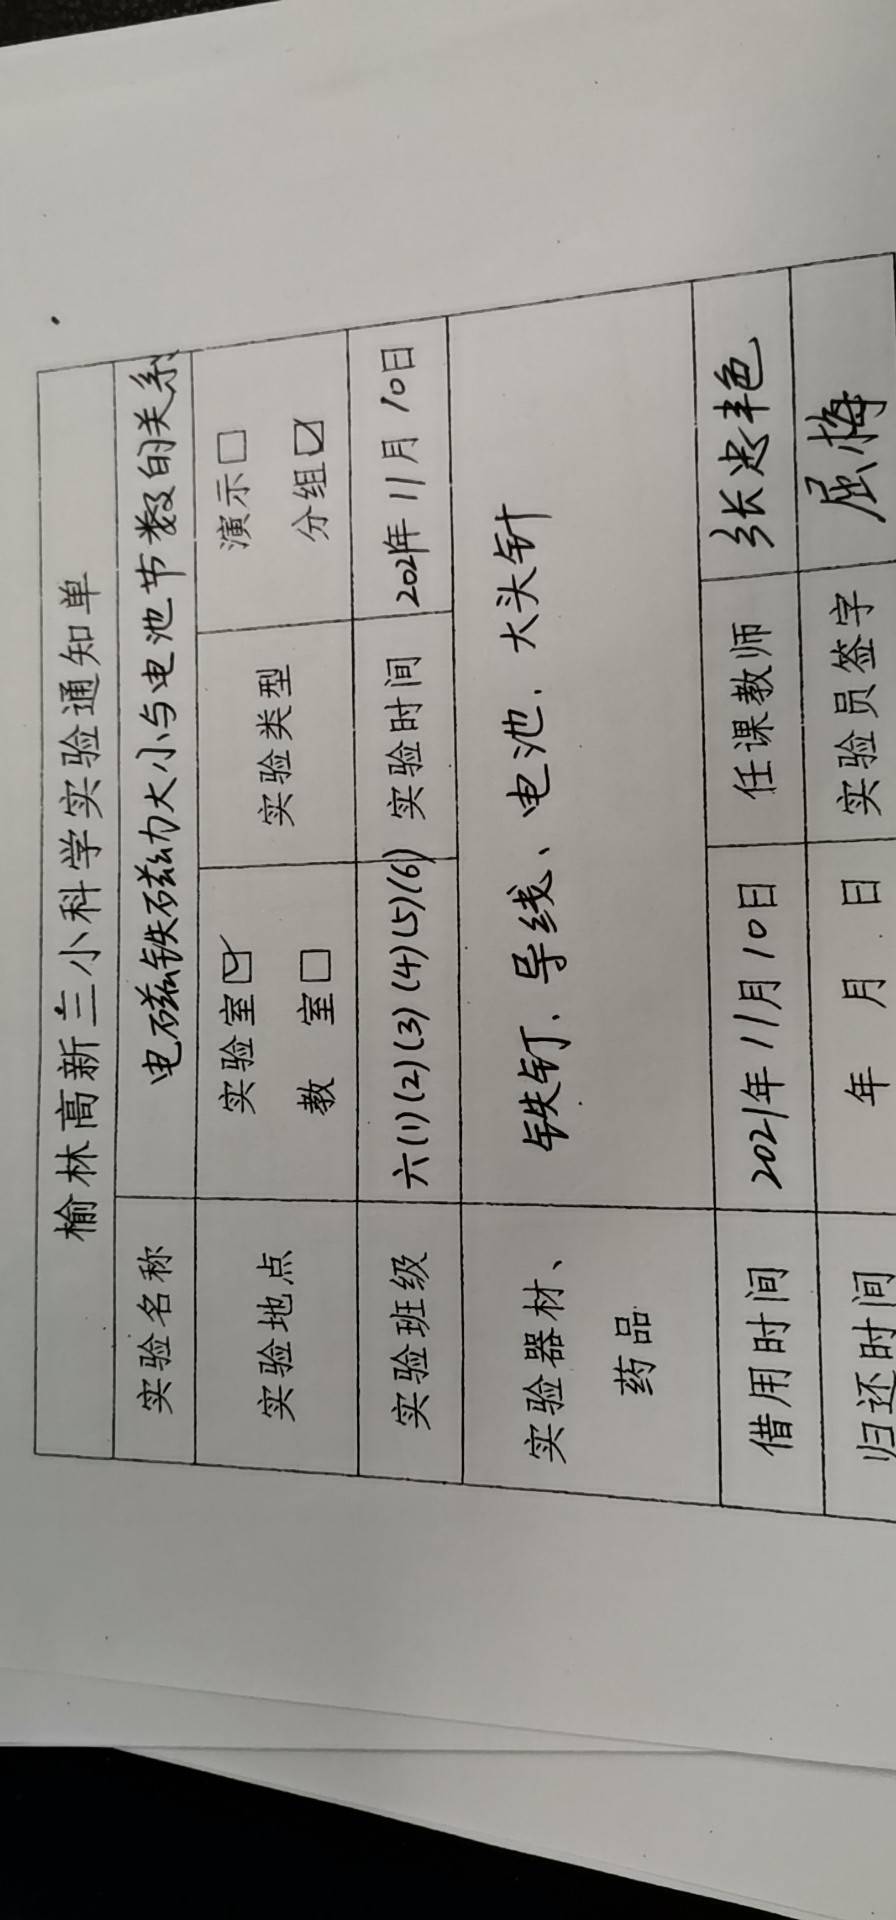 榆林高新三小科学实验通知单
实验名称 电磁铁磁力大小与电池节数的关系
实验地点 实验室☑ 教 室□ 实验类型 演示□ 分组☑
实验班级 六(1)(2)(3)(4)(5)(6) 实验时间 2021年11月10日
实验器材、药品 铁钉、导线、电池、大头针
借用时间 2021年11月10日 任课教师 张
归还时间 年 月 日 实验员签字 屈梅